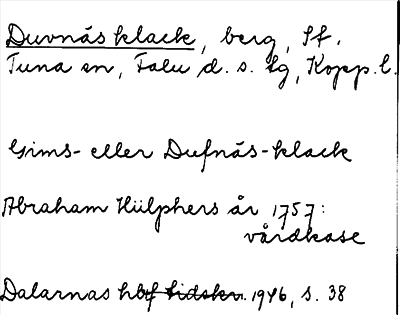 Duvnäs klack, berg, Sf.
Tuna sn, Falu d. s. tg, Kopp. l.
Gims- eller Dufnäs-klack
Abraham Hülphers år 1757:
vårdkase
Dalarnas hbf tidskr. 1946, s. 38